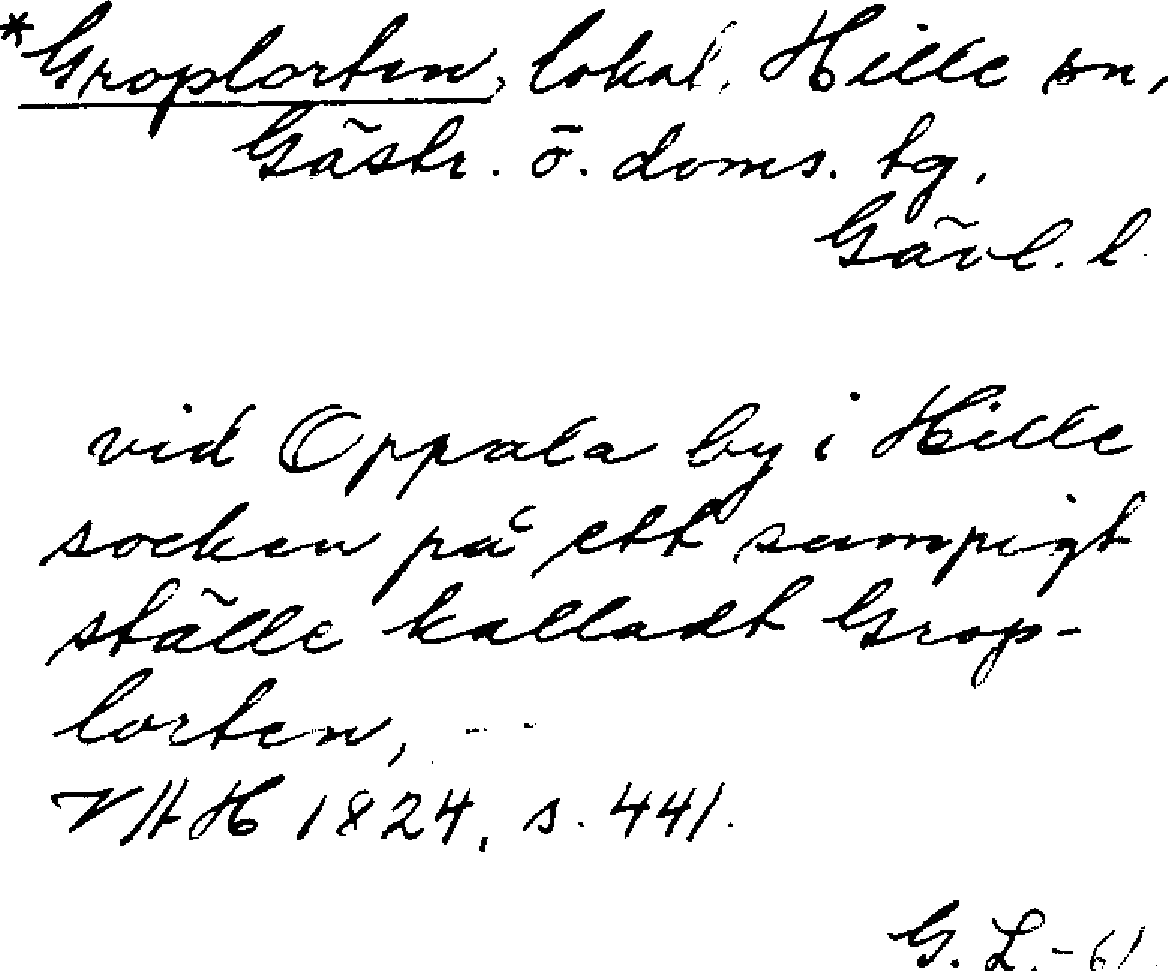 *Groplorten, lokal, Hille sn,
Gästr. ö. doms. tg.
Gävl. l.
vid Oppala by i Hille
socken på ett sumpigt
ställe kalladt Grop-
lorten, ---
VAH 1824, s. 441.
G. L. -61